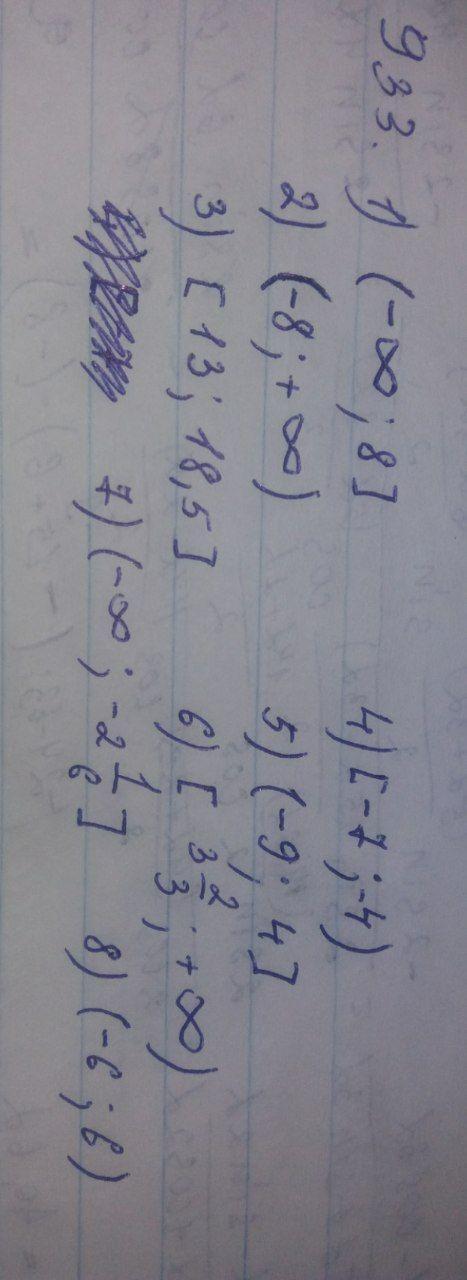 933. 1) (-∞; 8] 4) [-7; -4)
2) (-8; +∞) 5) (-9; 4]
3) [13; 18,5] 6) [3 2/3; +∞)
7) (-∞; -2 1/6] 8) (-6; 6)